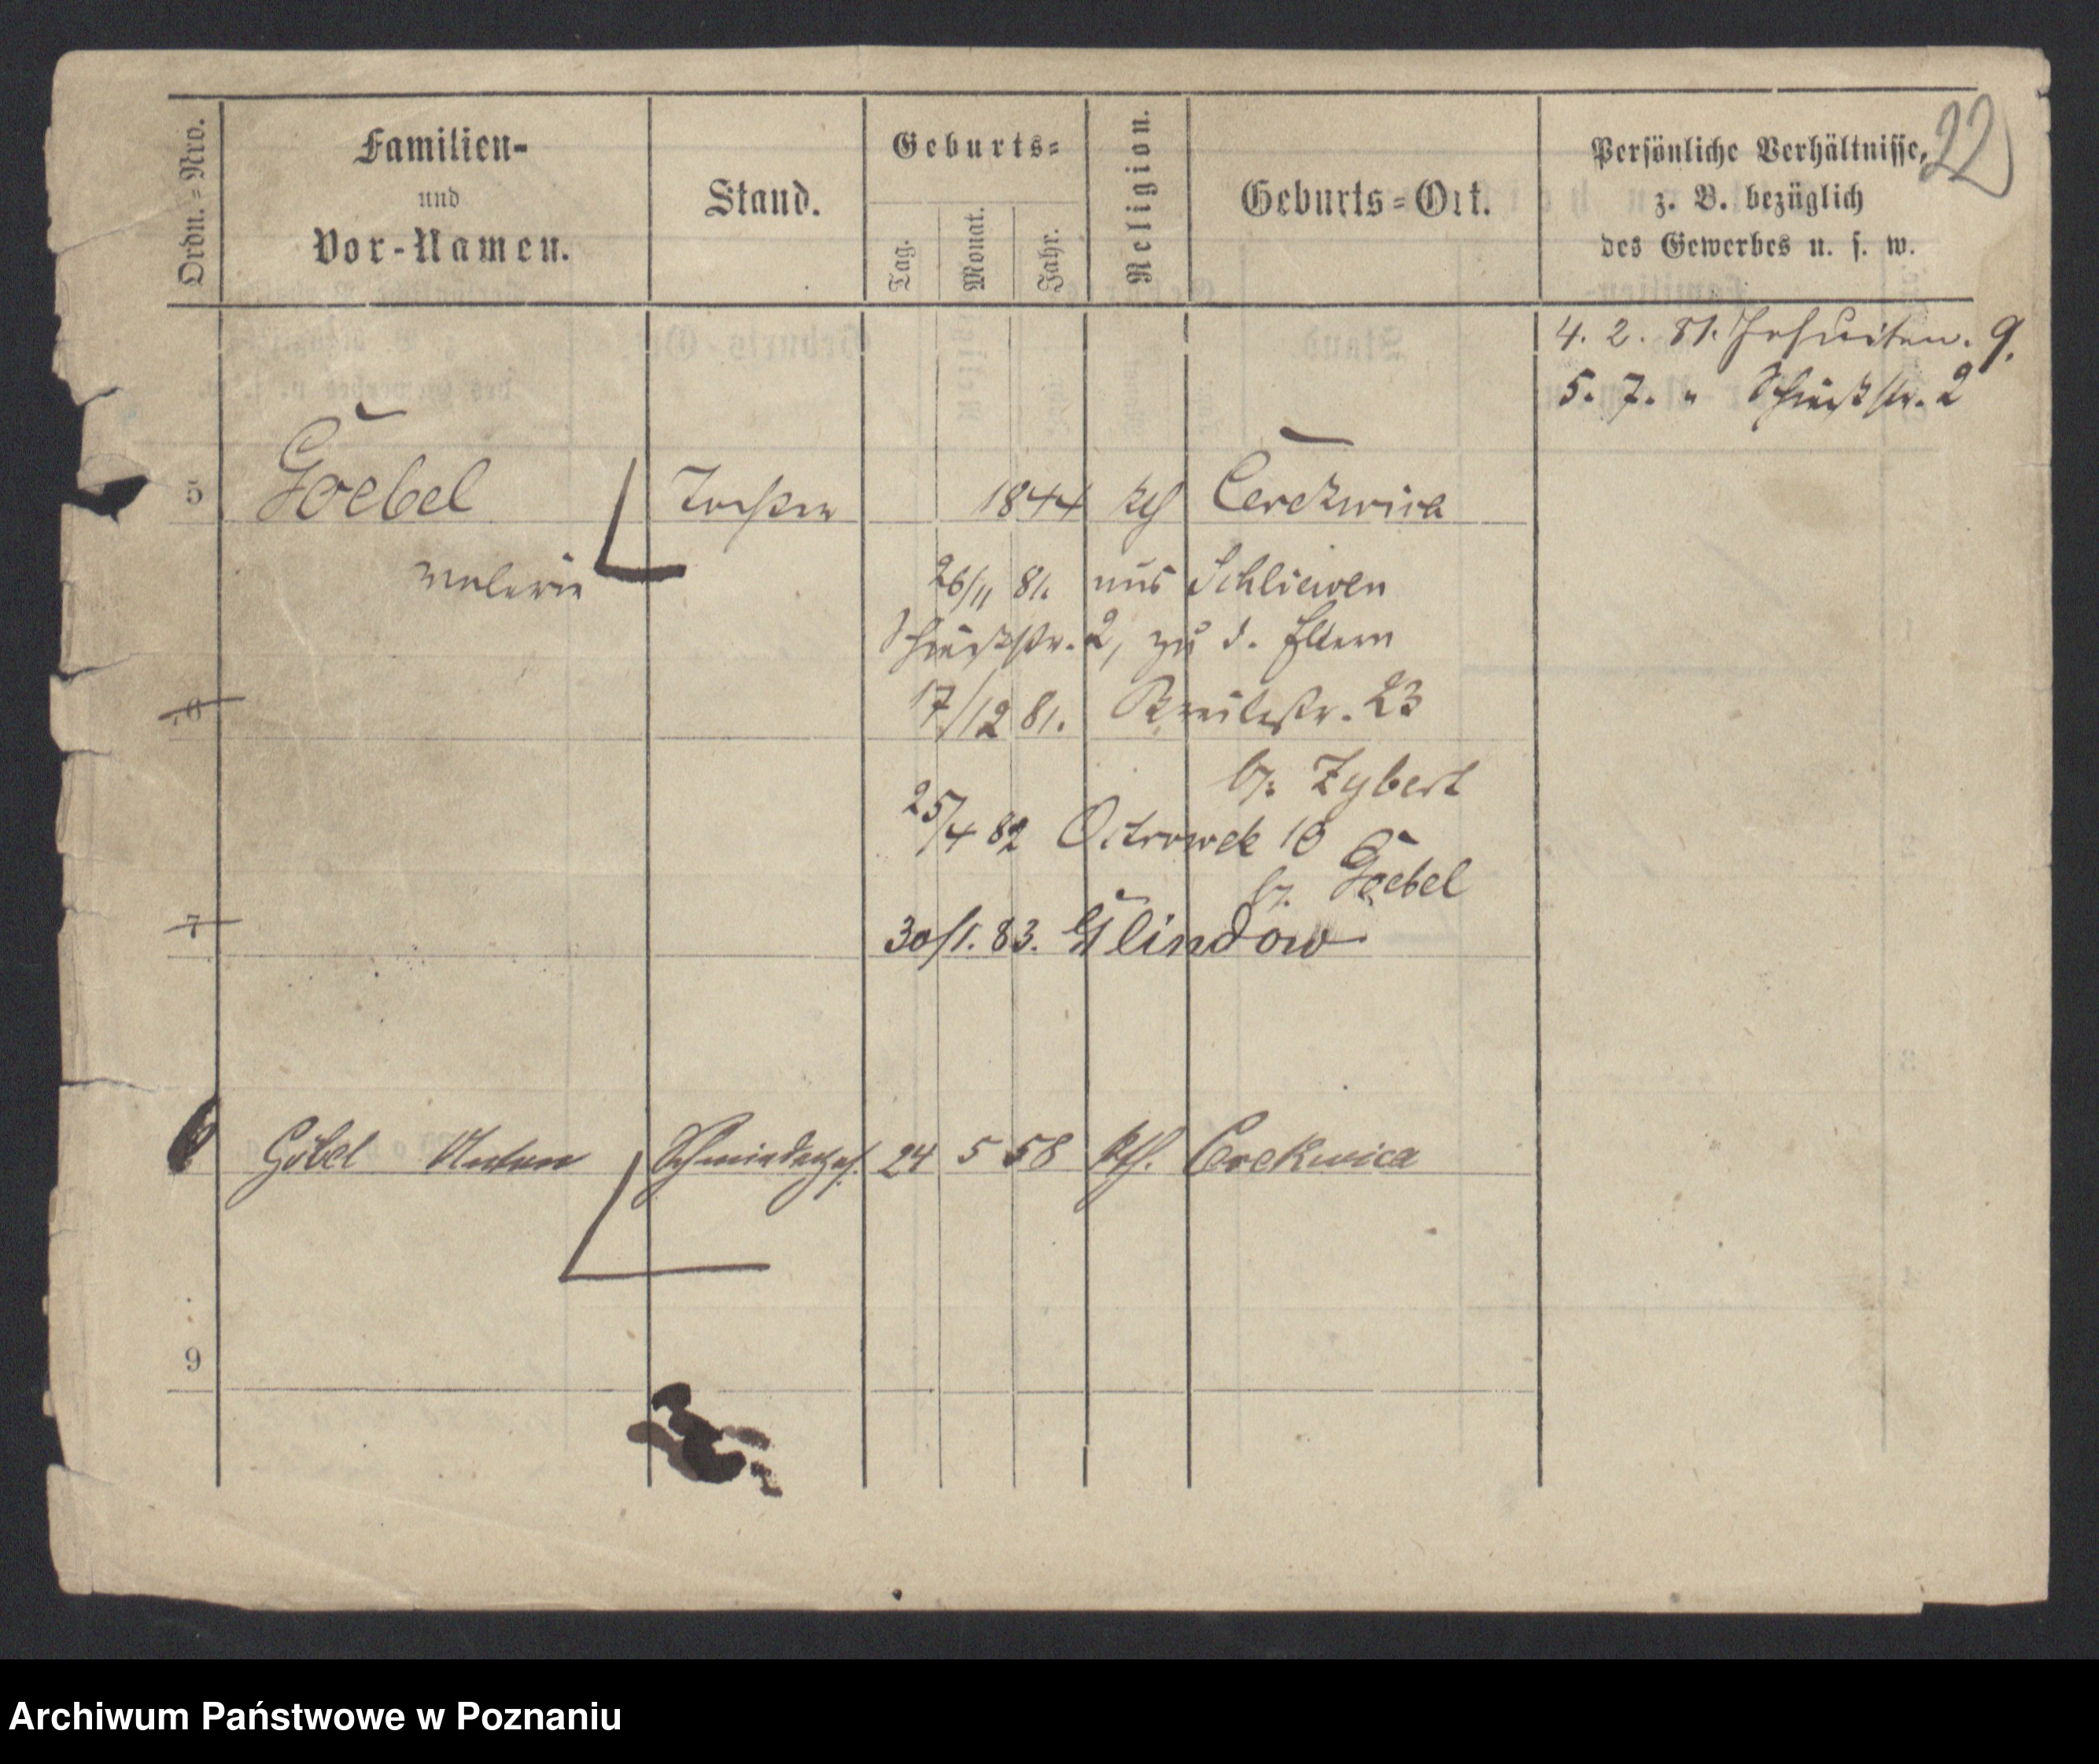 22
Ordn.-Nro.
Familien-
und
Vor-Namen.
Stand.
Geburts-
Tag.
Monat.
Jahr.
Religion.
Geburts-Ort.
Persönliche Verhältnisse,
z. B. bezüglich
des Gewerbes u. s. w.
4. 2. 81. Jesuiten. 9.
5. 7. " Schießstr. 2
5 Goebel Tochter 1844 kth Cerekwica
Valerie
26/11 81. aus Schliewen
Schießstr. 2, zu d. Eltern
6 17/12 81. Breitestr. 23
b. Zybert
25/4 82 Ostrowek 10
b. Goebel
7 30/1. 83. Glindow
8 Göbel Anton Schmiedeges. 24 5 58 kth. Cerekwica
9
Archiwum Państwowe w Poznaniu